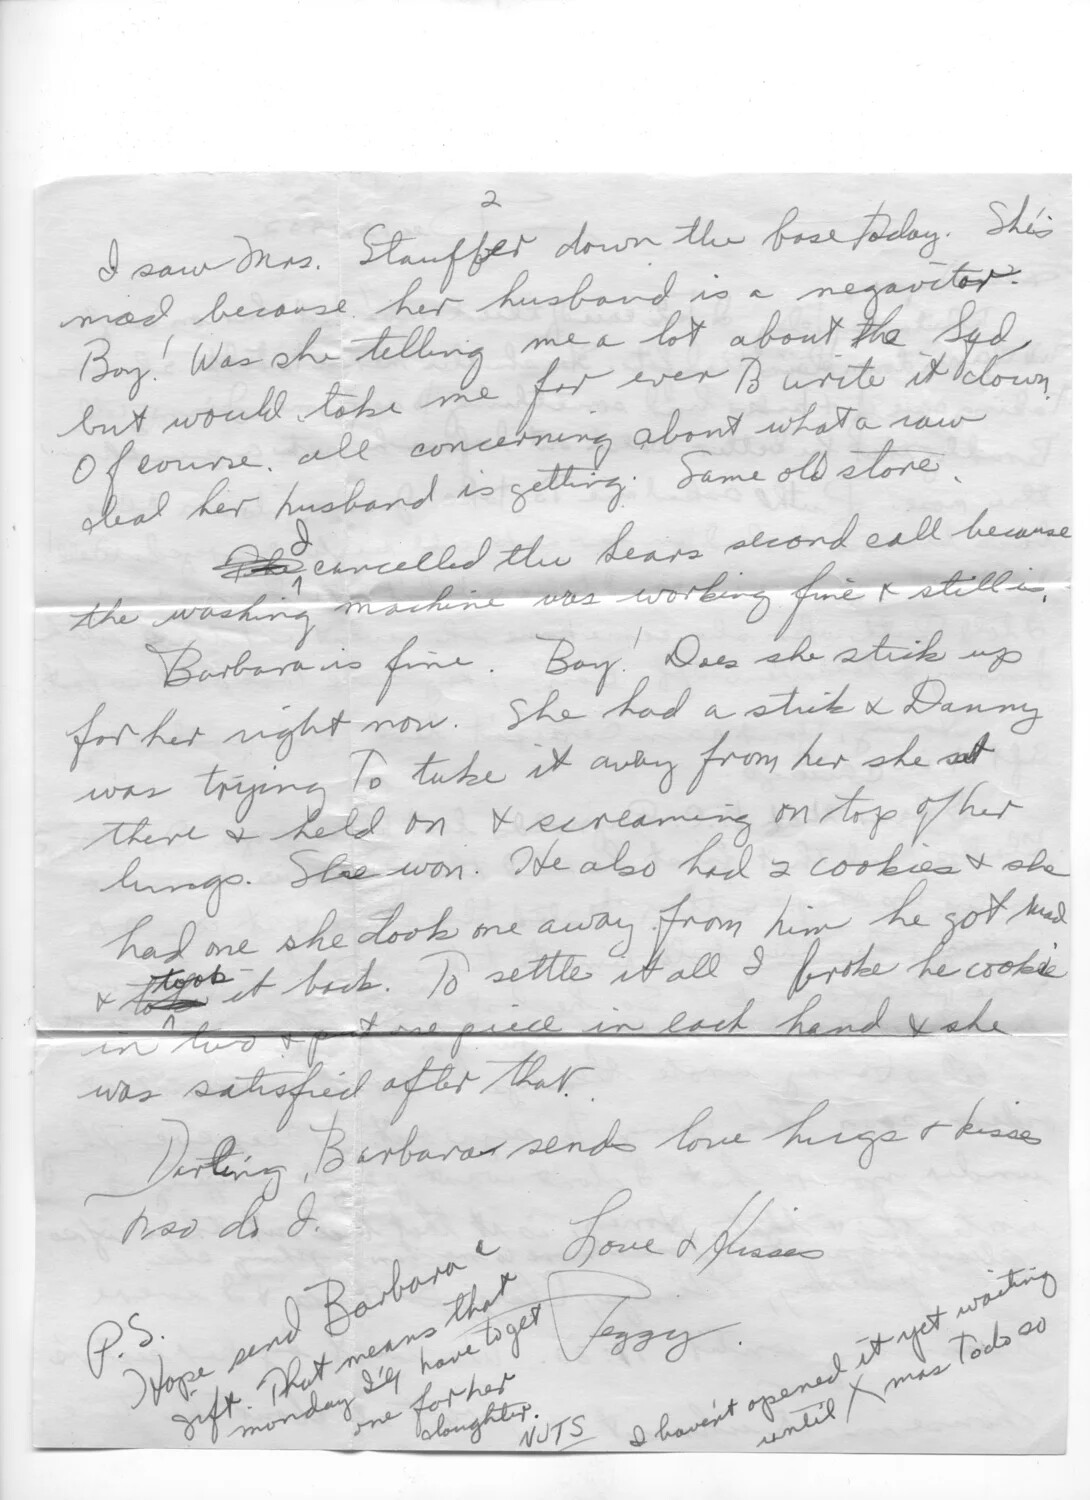 2
I saw Mrs. Stauffer down the base today. She's
mad because her husband is a negavitor.
Boy! Was she telling me a lot about the Sqd,
but would take me for ever to write it down.
Of course. all concerning about what a raw
deal her husband is getting. Same old store.
I cancelled the Sears second call because
the washing machine was working fine & still is.
Barbara is fine. Boy! Does she stick up
for her right now. She had a stick & Danny
was trying to take it away from her she sat
there & held on & screaming on top of her
lungs. She won. He also had 2 cookies & she
had one she took one away from him he got mad
& took it back. To settle it all I broke he cookie
in two & put one piece in each hand & she
was satisfied after that.
Darling, Barbara sends love hugs & kisses
so do I.
Love & Kisses
Peggy.
P.S.
Hope send Barbara a
gift. That means that
monday I'll have to get
one for her
daughter.
NUTS
I haven't opened it yet waiting
until Xmas To do so